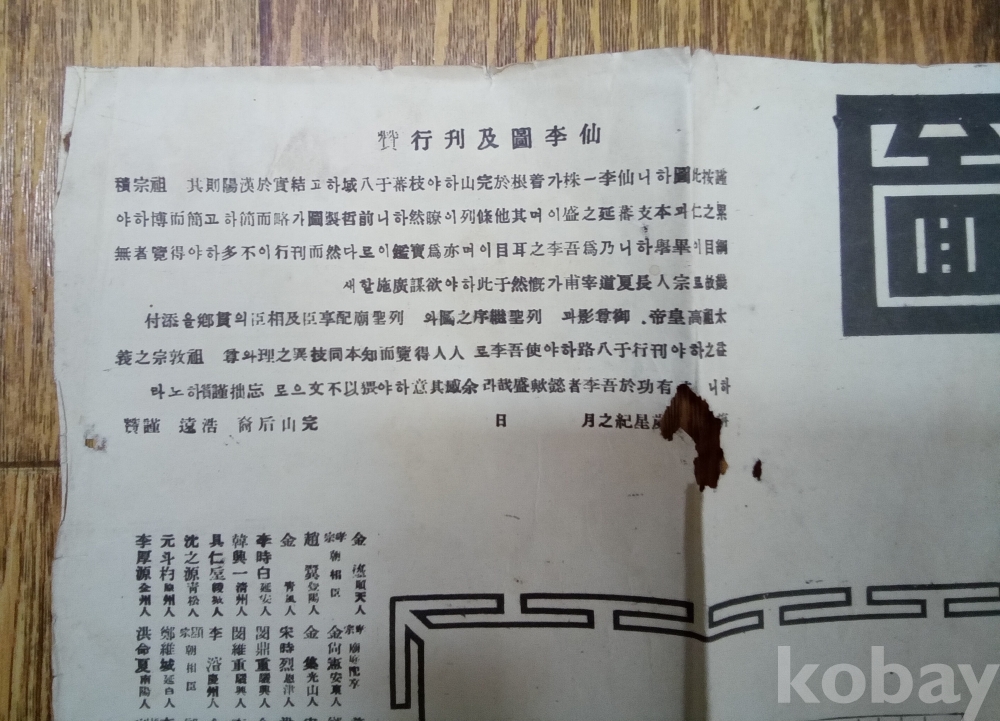 圖
仙李圖及刊行贊
謹按此圖하니仙李一株가着根於完山하야枝蕃于八域하고結實於漢陽則其 祖宗積
累之仁과本支蕃延之盛이며其他條列이瞭然하니前哲製圖가略而簡하고簡而博하야
綱目이畢擧하니乃爲吾李之耳目이며亦爲寶鑑이로다然而刊行이不多하야得覽者無
幾故로宗人長夏道宰甫가慨然于此하야欲謀廣施할새
太祖高皇帝. 御尊影과 列聖繼序之圖와 列聖廟配享臣及相臣의貫鄕을添付
之하야刊行于八路하야使吾李로 人人得覽而知本同技異之理와尊 祖敦宗之義
하니 有功於吾李者懿歟盛哉라余其意하야猥以不文으로 忘拙謹贊하노라
歲星紀之月 日 完山后裔 浩遠 謹贊
金瑬順天人
孝宗朝相臣
趙翼豊陽人
金 靑風人
李時白延安人
韓興一淸州人
具仁垕綾城人
沈之源靑松人
元斗杓原州人
李厚源全州人
孝宗廟庭配享
金尙憲安東人
金集光山人
宋時烈恩津人
閔鼎重驪興人
閔維重驪興人
李 慶州人
顯宗朝相臣
鄭維城延日人
洪命夏南陽人
kobay